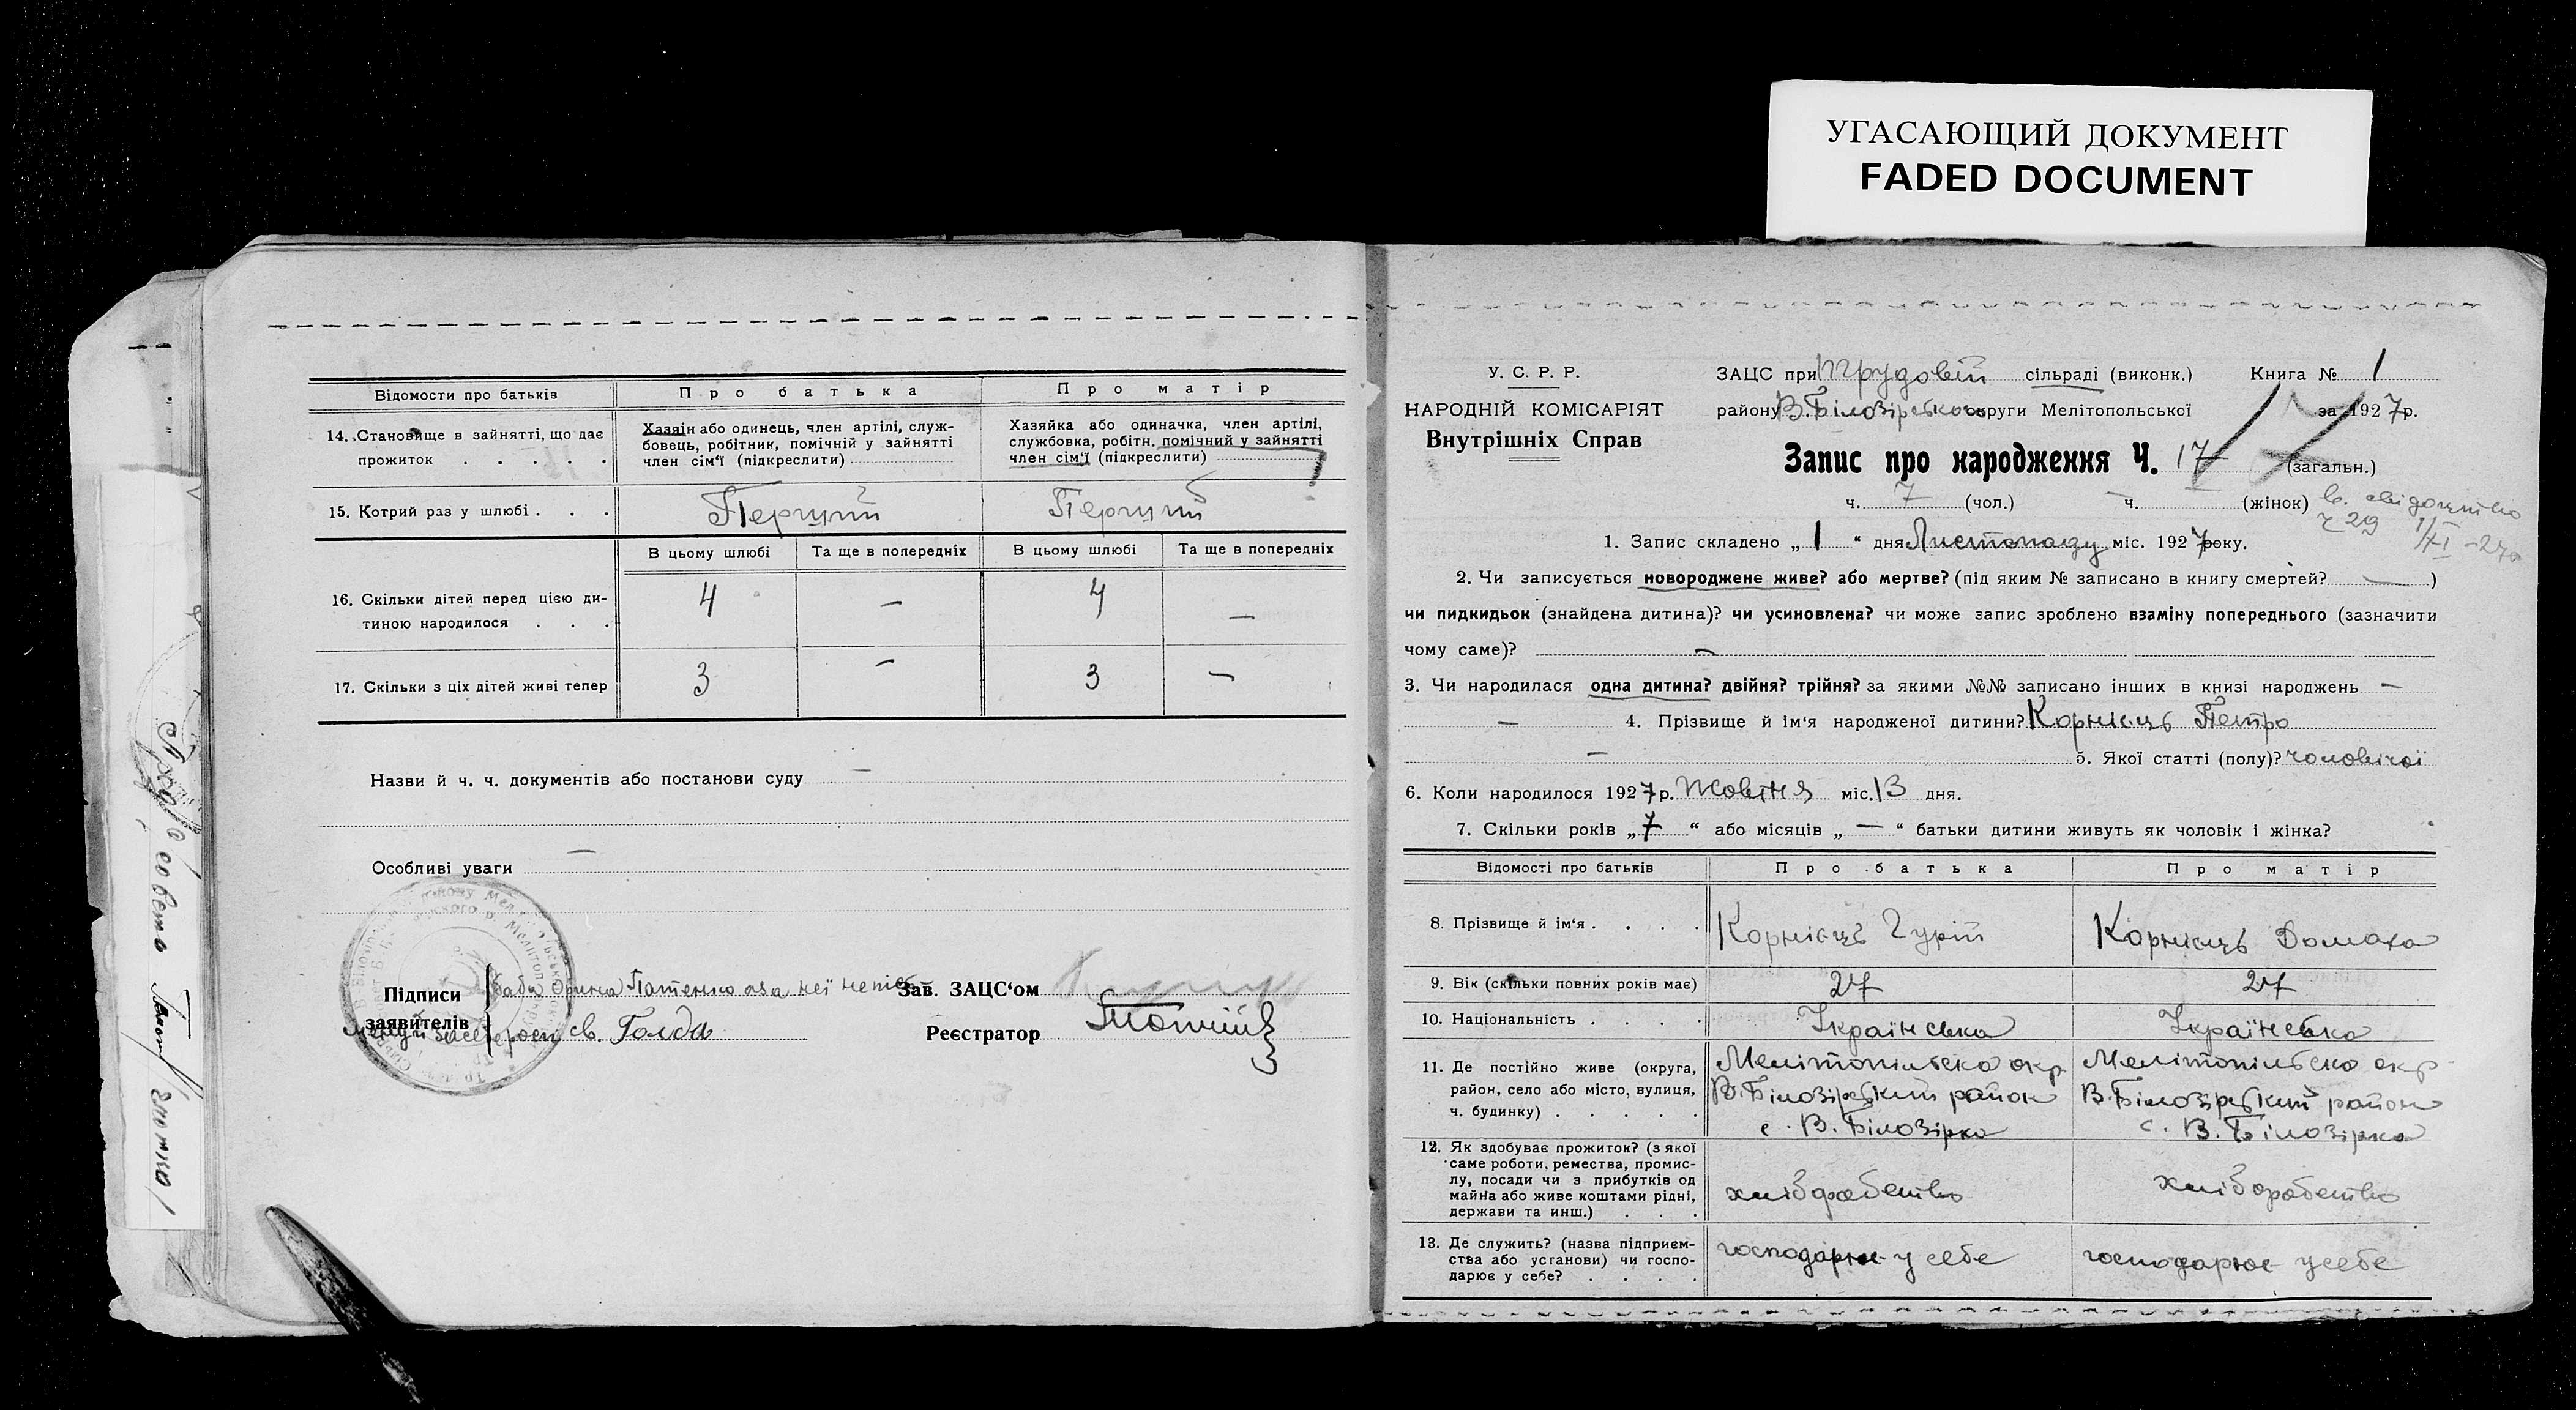 УГАСАЮЩИЙ ДОКУМЕНТ
FADED DOCUMENT
Відомости про батьків
Про батька
Про матір
14. Становище в зайнятті, що дає прожиток . . . . .
Хазяін або одинець, член артілі, служ-
бовець, робітник, помічній у зайнятті
член сім'ї (підкреслити)
Хазяйка або одиначка, член артілі,
службовка, робітн. помічний у зайнятті
член сім'ї (підкреслити)
15. Котрий раз у шлюбі . . .
Перший
Перший
В цьому шлюбі
Та ще в попередніх
В цьому шлюбі
Та ще в попередніх
16. Скільки дітей перед цією ди-
тиною народилося . . .
4 — 4 —
17. Скільки з ціх дітей живі тепер
3 — 3 —
Назви й ч. ч. документів або постанови суду —
Особливі уваги —
Підписи
заявителів
баба Орина
св. Голда
Зав. ЗАЦС'ом
Реєстратор
У. С. Р. Р.
НАРОДНІЙ КОМІСАРІЯТ
Внутрішніх Справ
ЗАЦС при Трудовій сільраді (виконк.) Книга № 1
району В. Білозірського округи Мелітопольської за 1927 р.
Запис про народження Ч. 17 (загальн.)
ч. 7 (чол.) ч. — (жінок)
в. свідоцтво
ч 29 1/XI -27р
1. Запис складено „ 1 “ дня Листопаду міс. 1927 року.
2. Чи записується новороджене живе? або мертве? (під яким № записано в книгу смертей? — )
чи пидкидьок (знайдена дитина)? чи усиновлена? чи може запис зроблено взаміну попереднього (зазначити
чому саме)? —
3. Чи народилася одна дитина? двійня? трійня? за якими №№ записано інших в книзі народжень —
— 4. Прізвище й ім'я народженої дитини? Корнієць Петро
— 5. Якої статті (полу)? чоловічої
6. Коли народилося 1927 р. Жовтня міс. 13 дня.
7. Скільки років „ 7 “ або місяців „ — “ батьки дитини живуть як чоловік і жінка?
Відомості про батьків
Про батька
Про матір
8. Прізвище й ім'я . . . .
Корнієць Гурій
Корнієць Домаха
9. Вік (скільки повних років має)
27
27
10. Національність . . . .
Українська
Українська
11. Де постійно живе (округа,
район, село або місто, вулиця,
ч. будинку) . . . . .
Мелітопільска окр
В. Білозірський район
с. В. Білозірка
Мелітопільска окр
В. Білозірський район
с. В. Білозірка
12. Як здобуває прожиток? (з якої
саме роботи, ремества, промис-
лу, посади чи з прибутків од
майна або живе коштами рідні,
держави та инш.) . . .
хліборобство
хліборобство
13. Де служить? (назва підприєм-
ства або установи) чи госпо-
дарює у себе? . . . .
господарює у себе
господарює у себе